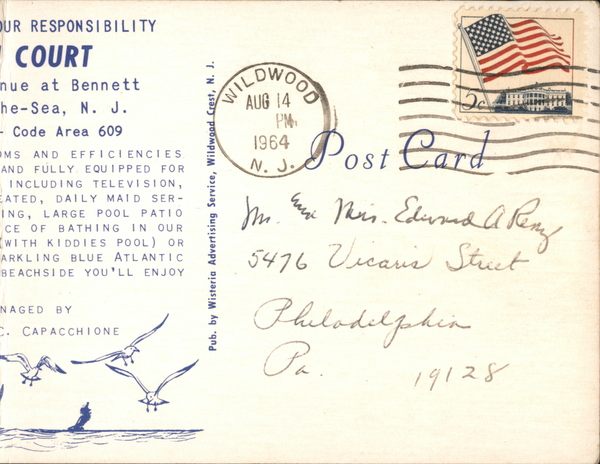 OUR RESPONSIBILITY
COURT
nue at Bennett
he-Sea, N. J.
- Code Area 609
OMS AND EFFICIENCIES
AND FULLY EQUIPPED FOR
INCLUDING TELEVISION,
EATED, DAILY MAID SER-
ING, LARGE POOL PATIO
CE OF BATHING IN OUR
(WITH KIDDIES POOL) OR
ARKLING BLUE ATLANTIC
BEACHSIDE YOU'LL ENJOY
NAGED BY
C. CAPACCHIONE
Pub. by Wisteria Advertising Service, Wildwood Crest, N. J.
WILDWOOD
AUG 14
PM
1964
N. J.
5c
Post Card
Mr. and Mrs. Edward A Renz
5476 Vicaris Street
Philadelphia
Pa. 19128